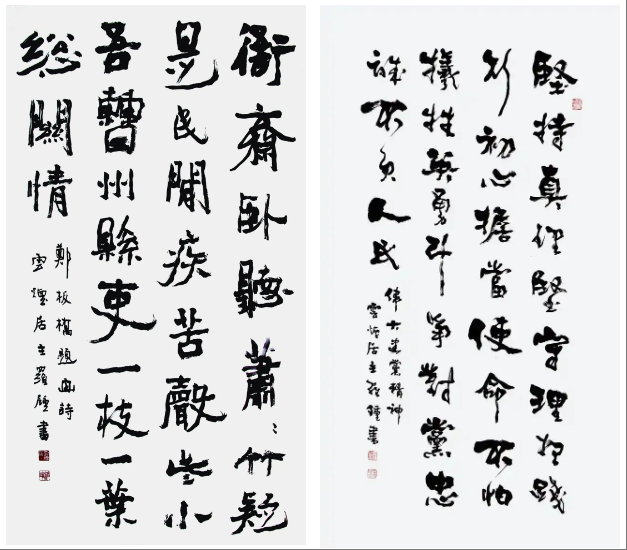 衙齋卧聽蕭〻竹疑
是民間疾苦聲些小
吾曹州縣吏一枝一葉
総關情
鄭板橋題畫詩
雲煙居主羅鍾書
堅持真理堅守理想踐
行初心擔當使命不怕
犧牲英勇鬥爭對黨忠
誠不負人民
偉大建黨精神
雲煙居主羅鍾書